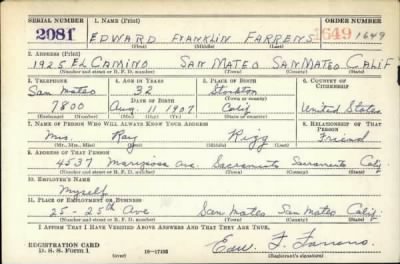 SERIAL NUMBER 1. NAME (Print) ORDER NUMBER
2081 EDWARD FRANKLIN FARRENS 1649 1649
(First) (Middle) (Last)
2. ADDRESS (Print)
1925 EL CAMINO SAN MATEO SAN MATEO CALIF
(Number and street or R. F. D. number) (Town) (County) (State)
3. TELEPHONE 4. AGE IN YEARS 5. PLACE OF BIRTH 6. COUNTRY OF CITIZENSHIP
San Mateo 32 Stockton
DATE OF BIRTH (Town or county)
7800 Aug. 11 1907 Calif United States
(Exchange) (Number) (Mo.) (Day) (Yr.) (State or country)
7. NAME OF PERSON WHO WILL ALWAYS KNOW YOUR ADDRESS 8. RELATIONSHIP OF THAT PERSON
Mrs. Ray Rigg Friend
(Mr., Mrs., Miss) (First) (Middle) (Last)
9. ADDRESS OF THAT PERSON
4537 Mariposa Ave. Sacramento Sacramento Calif
(Number and street or R. F. D. number) (Town) (County) (State)
10. EMPLOYER'S NAME
Myself
11. PLACE OF EMPLOYMENT OR BUSINESS
25 - 25th Ave San Mateo San Mateo Calif
(Number and street or R. F. D. number) (Town) (County) (State)
I AFFIRM THAT I HAVE VERIFIED ABOVE ANSWERS AND THAT THEY ARE TRUE.
REGISTRATION CARD
D. S. S. Form 1 16-17105 Edw. F. Farrens
(Registrant's signature)